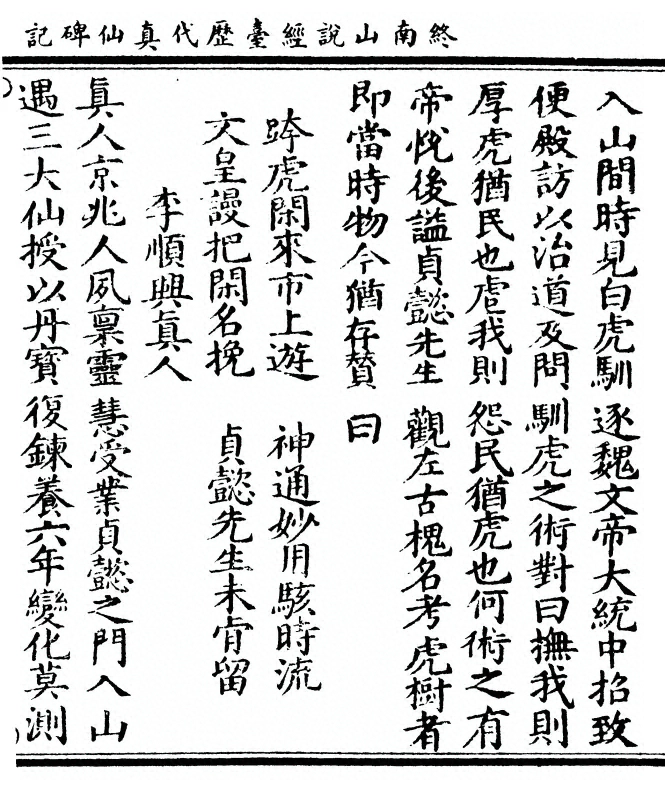 終南山說經臺歷代真仙碑記
入山間時見白虎馴逐魏文帝大統中招致
便殿訪以治道及問馴虎之術對曰撫我則
厚虎猶民也虐我則怨民猶虎也何術之有
帝悅後謚貞懿先生觀左古槐名考虎樹者
即當時物今猶存贊曰
跨虎閑來市上遊　神通妙用駭時流
文皇謾把閑名挽　貞懿先生未肯留
李順興眞人
眞人京兆人夙稟靈慧受業貞懿之門入山
遇三大仙授以丹寶復鍊養六年變化莫測